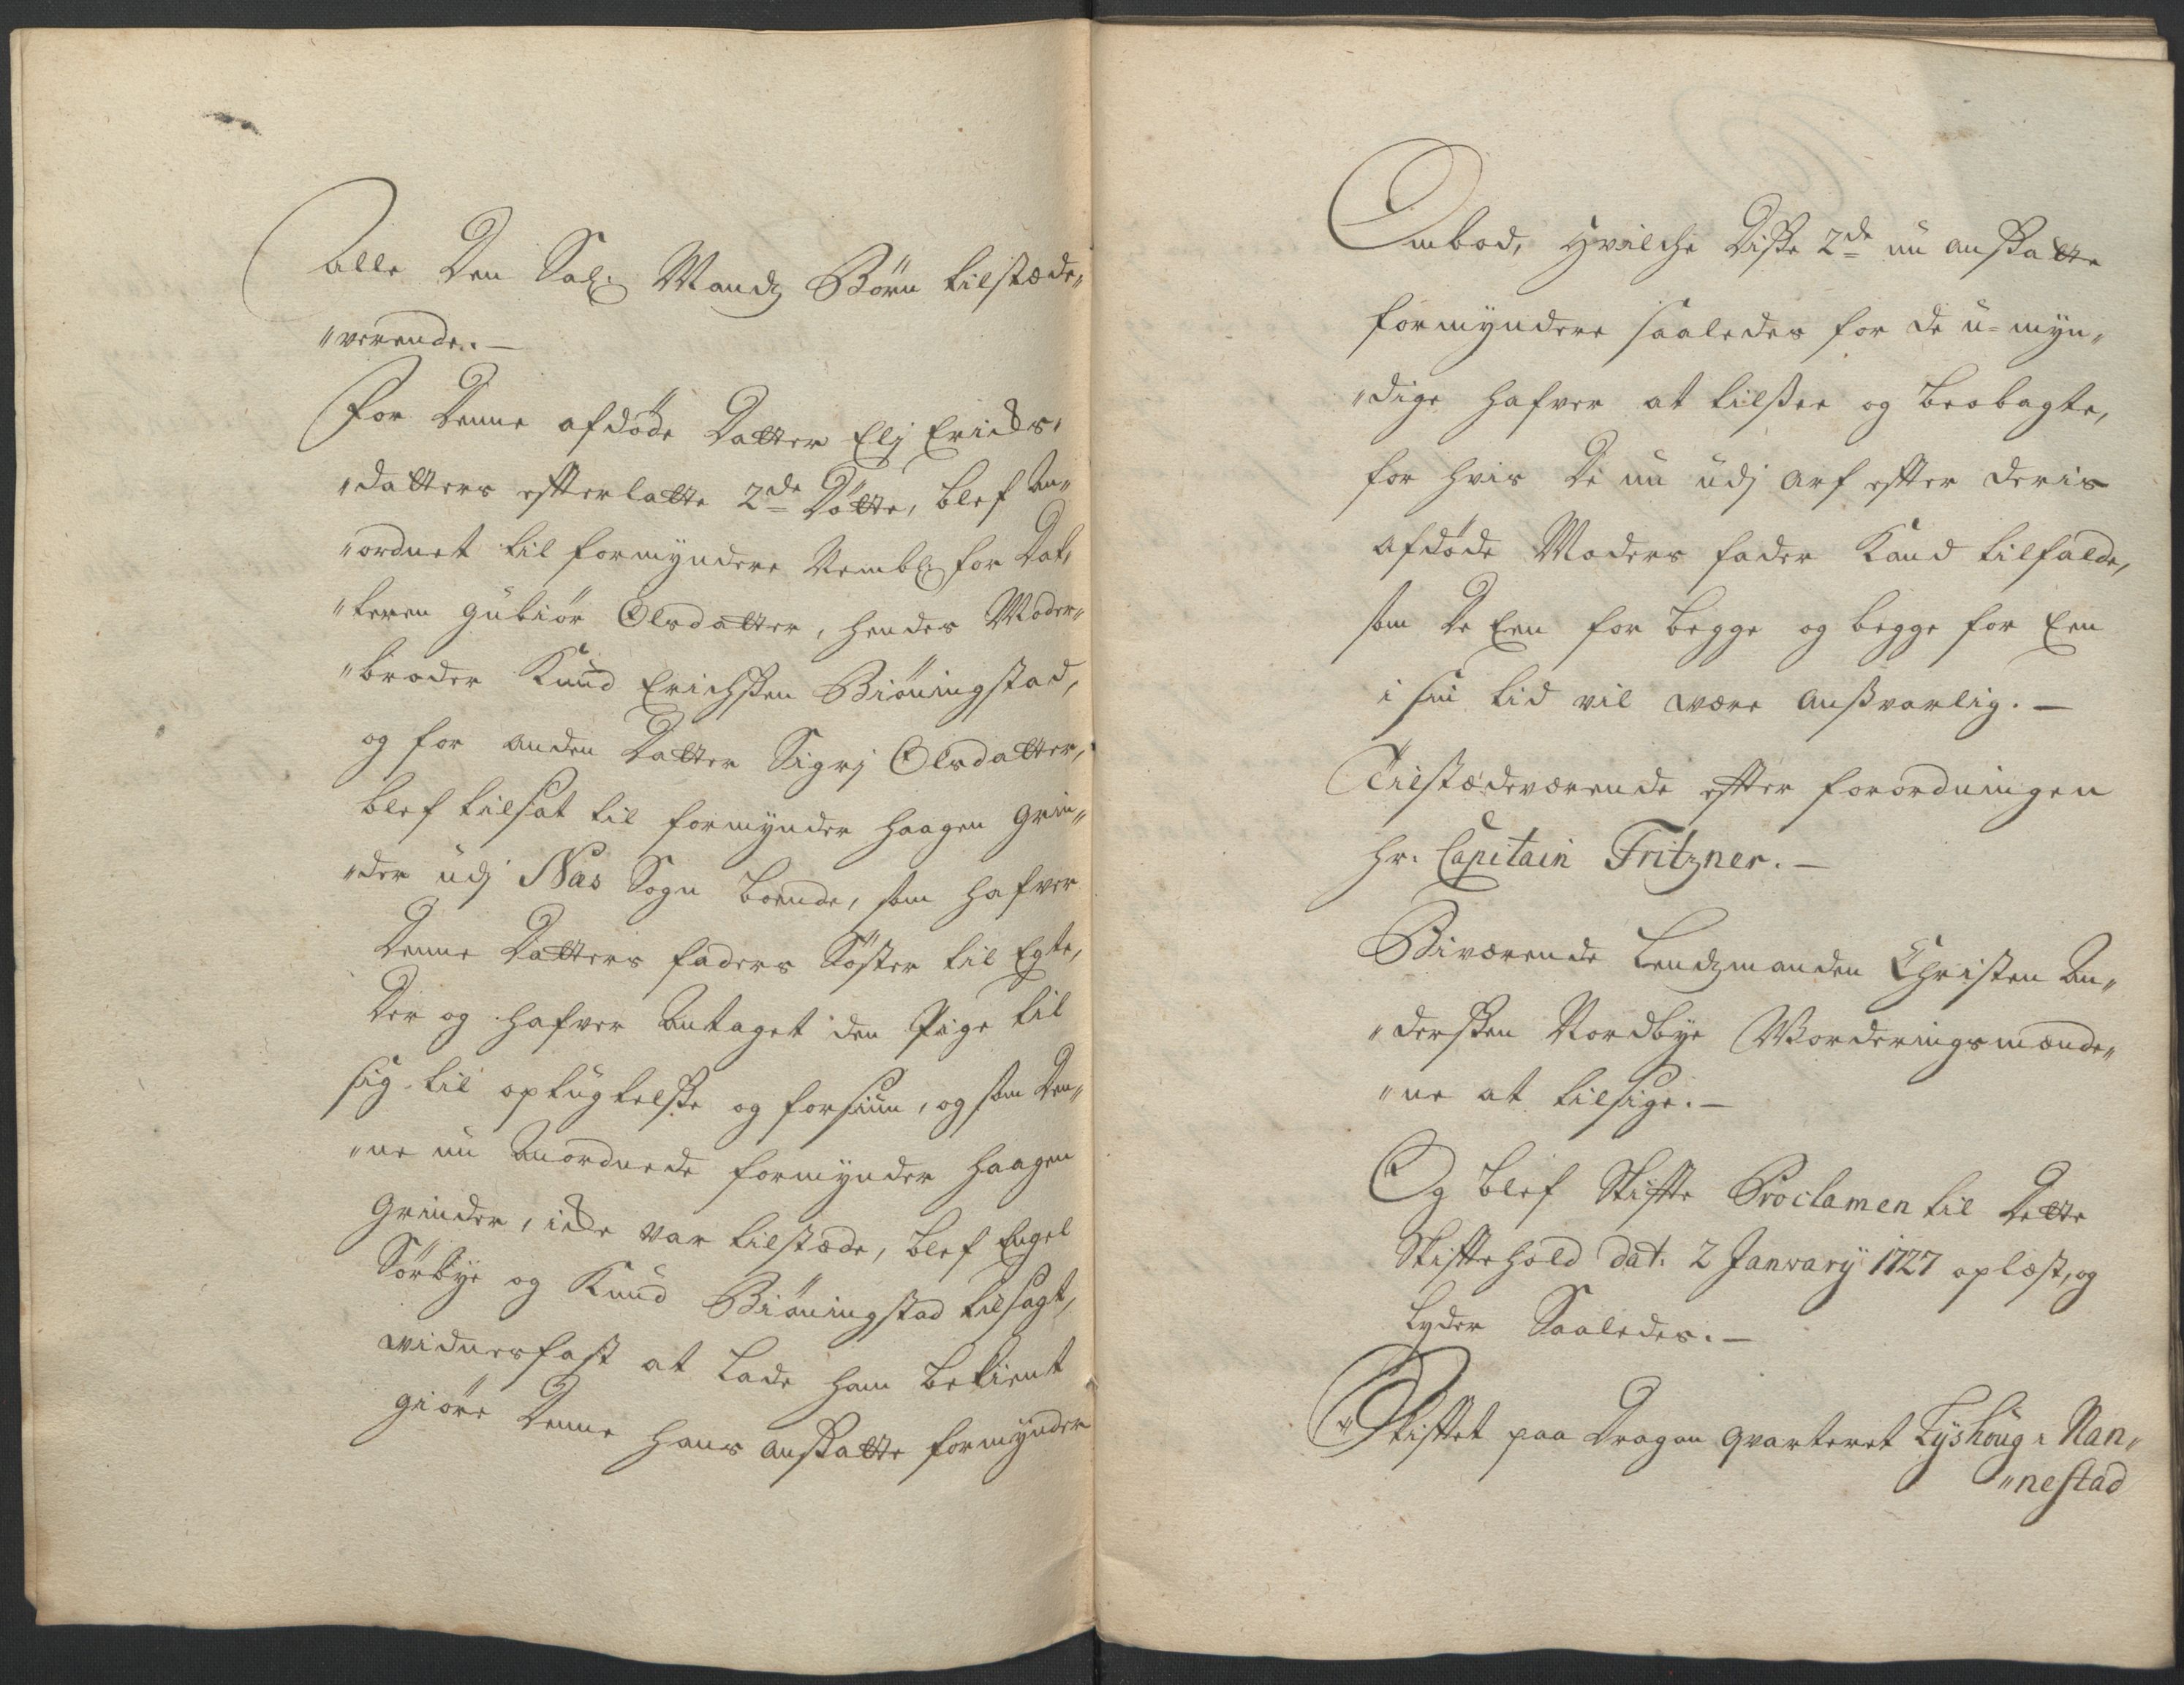 Alle Den Sal: Mandz Börn tilstæde„
„verende. —
For Denne afdöde Datter Elj Erichs„
„datters efterlatte 2de Döttre, blef an„
„ordnet til formyndere Nembl: for Dat„
„teren Gubiör Olsdatter, hendes Moder„
„broder Knud Erichssen Biöningstad,
og for anden Datter Sigrj Olsdatter,
blef tilsat til formynder Haagen Grin„
„der udj Næs Sogn boende, som hafver
Denne Datters faders Söster til Egte,
Der og hafver Antaget den Pige til
sig til optugtelsse og forsiun, og som Den„
„ne nu Anordnede formynder Haagen
Grinder, icke var tilstæde, blef Engel
Sörbÿe og Knud Biöningstad tilsagt,
widnesfast at Lade ham bekient
giöre Denne hans anssatte formynder
Ombod, Hvilche Disse 2de nu anssatte
formyndere saaledes for de u-mÿn„
„dige hafver at tilssee og beobagte,
for hvis De nu udj Arf efter deris
afdöde Moders fader Kand tilfalde,
som De Een for begge og begge for Een
i sin tid vil være Anssvarlig. —
Tilstædeværende efter forordningen
Hr: Capitain Fritzner. —
Biværende Lendzmanden Christen An„
„derssen Nordbÿe Worderingsmænde„
„ne at tilsige. —
Og blef Skiffte Proclamen til Dette
Skiftehold dat: 2 Janvarÿ 1727 oplæst, og
Lyder Saaledes. —
Skifftet paa Dragon Qvarteret Lÿshoug i Nan„
„nestad